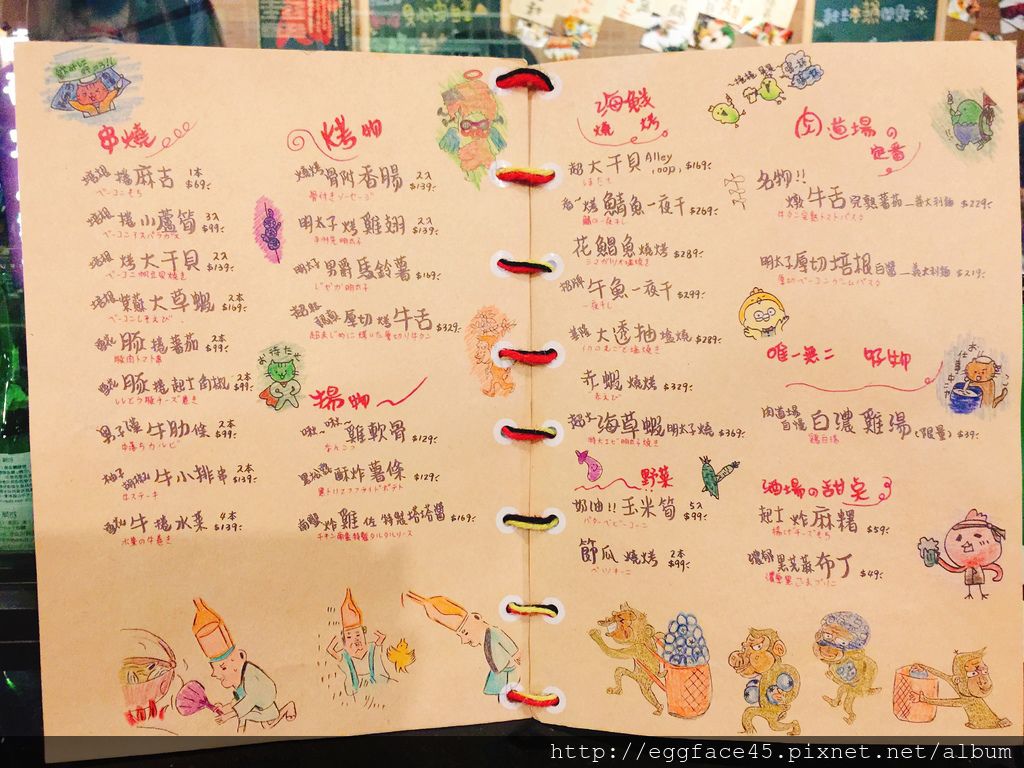 串燒
培根 捲 麻吉 1本 $69.-
ベーコンもち
培根 捲 小蘆筍 3入 $99.-
ベーコンアスパラガス
培根 烤 大干貝 2入 $139.-
ベーコン帆立貝焼き
培根 紫蘇 大草蝦 2本 $169.-
ベーコンしそえび
豚 捲 番茄 2本 $99.-
豚肉トマト串
豚 捲 起士角椒 2本 $99.-
ししとう豚チーズ巻き
男子漢 牛肋條 2本 $99.-
中落ちカルビ
柚子胡椒 牛小排串 2本 $139.-
牛ステーキ
牛 捲 水菜 4本 $139.-
水菜の牛巻き
烤物
燒烤 骨附香腸 2入 $139.-
骨付きソーセージ
明太子 烤 雞翅 2入 $139.-
手羽先明太子
明太子 男爵 馬鈴薯 $169.-
じゃが明太子
超認真 厚切 烤 牛舌 $329.-
超まじめに焼いた厚切り牛タン
お待たせ
揚物~
啾~啾~ 雞軟骨 $129.-
なんこつ
黑松露 酥炸薯條 $129.-
黒トリュフフライドポテト
南蠻 炸雞 佐 特製塔塔醬 $169.-
チキン南蛮特製タルタルソース
海鮮
燒烤
超 大干貝 Alley oop! $169.-
ほたて
烤 鯖魚一夜干 $269.-
鯖の一夜干し
花鯤魚 燒烤 $289.-
シマガツオ塩焼き
招牌 牛魚一夜干 $299.-
一夜干し
大透抽 塩燒 $289.-
イカの丸ごと塩焼き
赤蝦 燒烤 $329.-
赤えび
超大 海草蝦 明太子燒 $369.-
特大エビ明太子焼き
野菜
奶油!! 玉米筍 5入 $99.-
バターベビーコーン
節瓜 燒烤 2本 $99.-
ズッキーニ
肉道場の
定番
名物!!
燉 牛舌 完熟蕃茄 義大利麵 $229.-
牛タン完熟トマトパスタ
明太子 厚切培根 白醬 義大利麵 $219.-
厚切ベーコンクリームパスタ
唯一無二 好物
肉道場自慢 白濃雞湯 (限量) $39.-
鶏白湯
酒場の甜実
起士 炸 麻糬 $59.-
揚げチーズもち
濃厚 黑芝麻 布丁 $49.-
濃厚黒ごまプリン
http://eggface45.pixnet.net/album